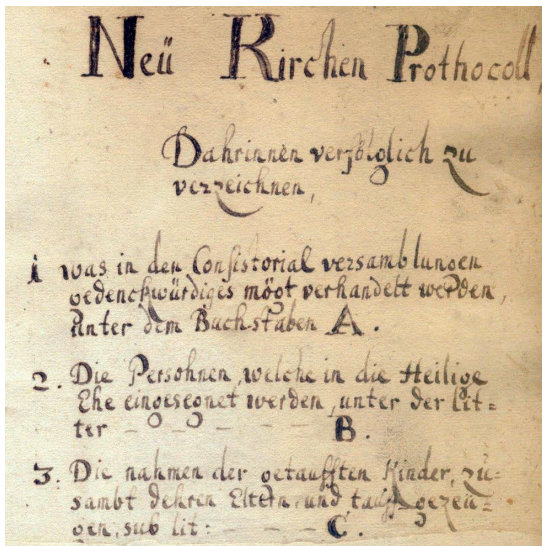 Neü Kirchen Prothocoll,
Dahrinnen verfölglich zu
verzeichnen,
1 was in den Consistorial versamblungen
gedenckwürdiges mögt verhandelt werden,
unter dem Buchstaben A.
2. Die Persohnen, welche in die Heilige
Ehe eingesegnet werden, unter der Lit=
ter – – – – – B.
3. Die nahmen der getaufften Kinder, zu=
sambt dehren Eltern, und tauffgezeu=
gen, sub lit: – – – C.